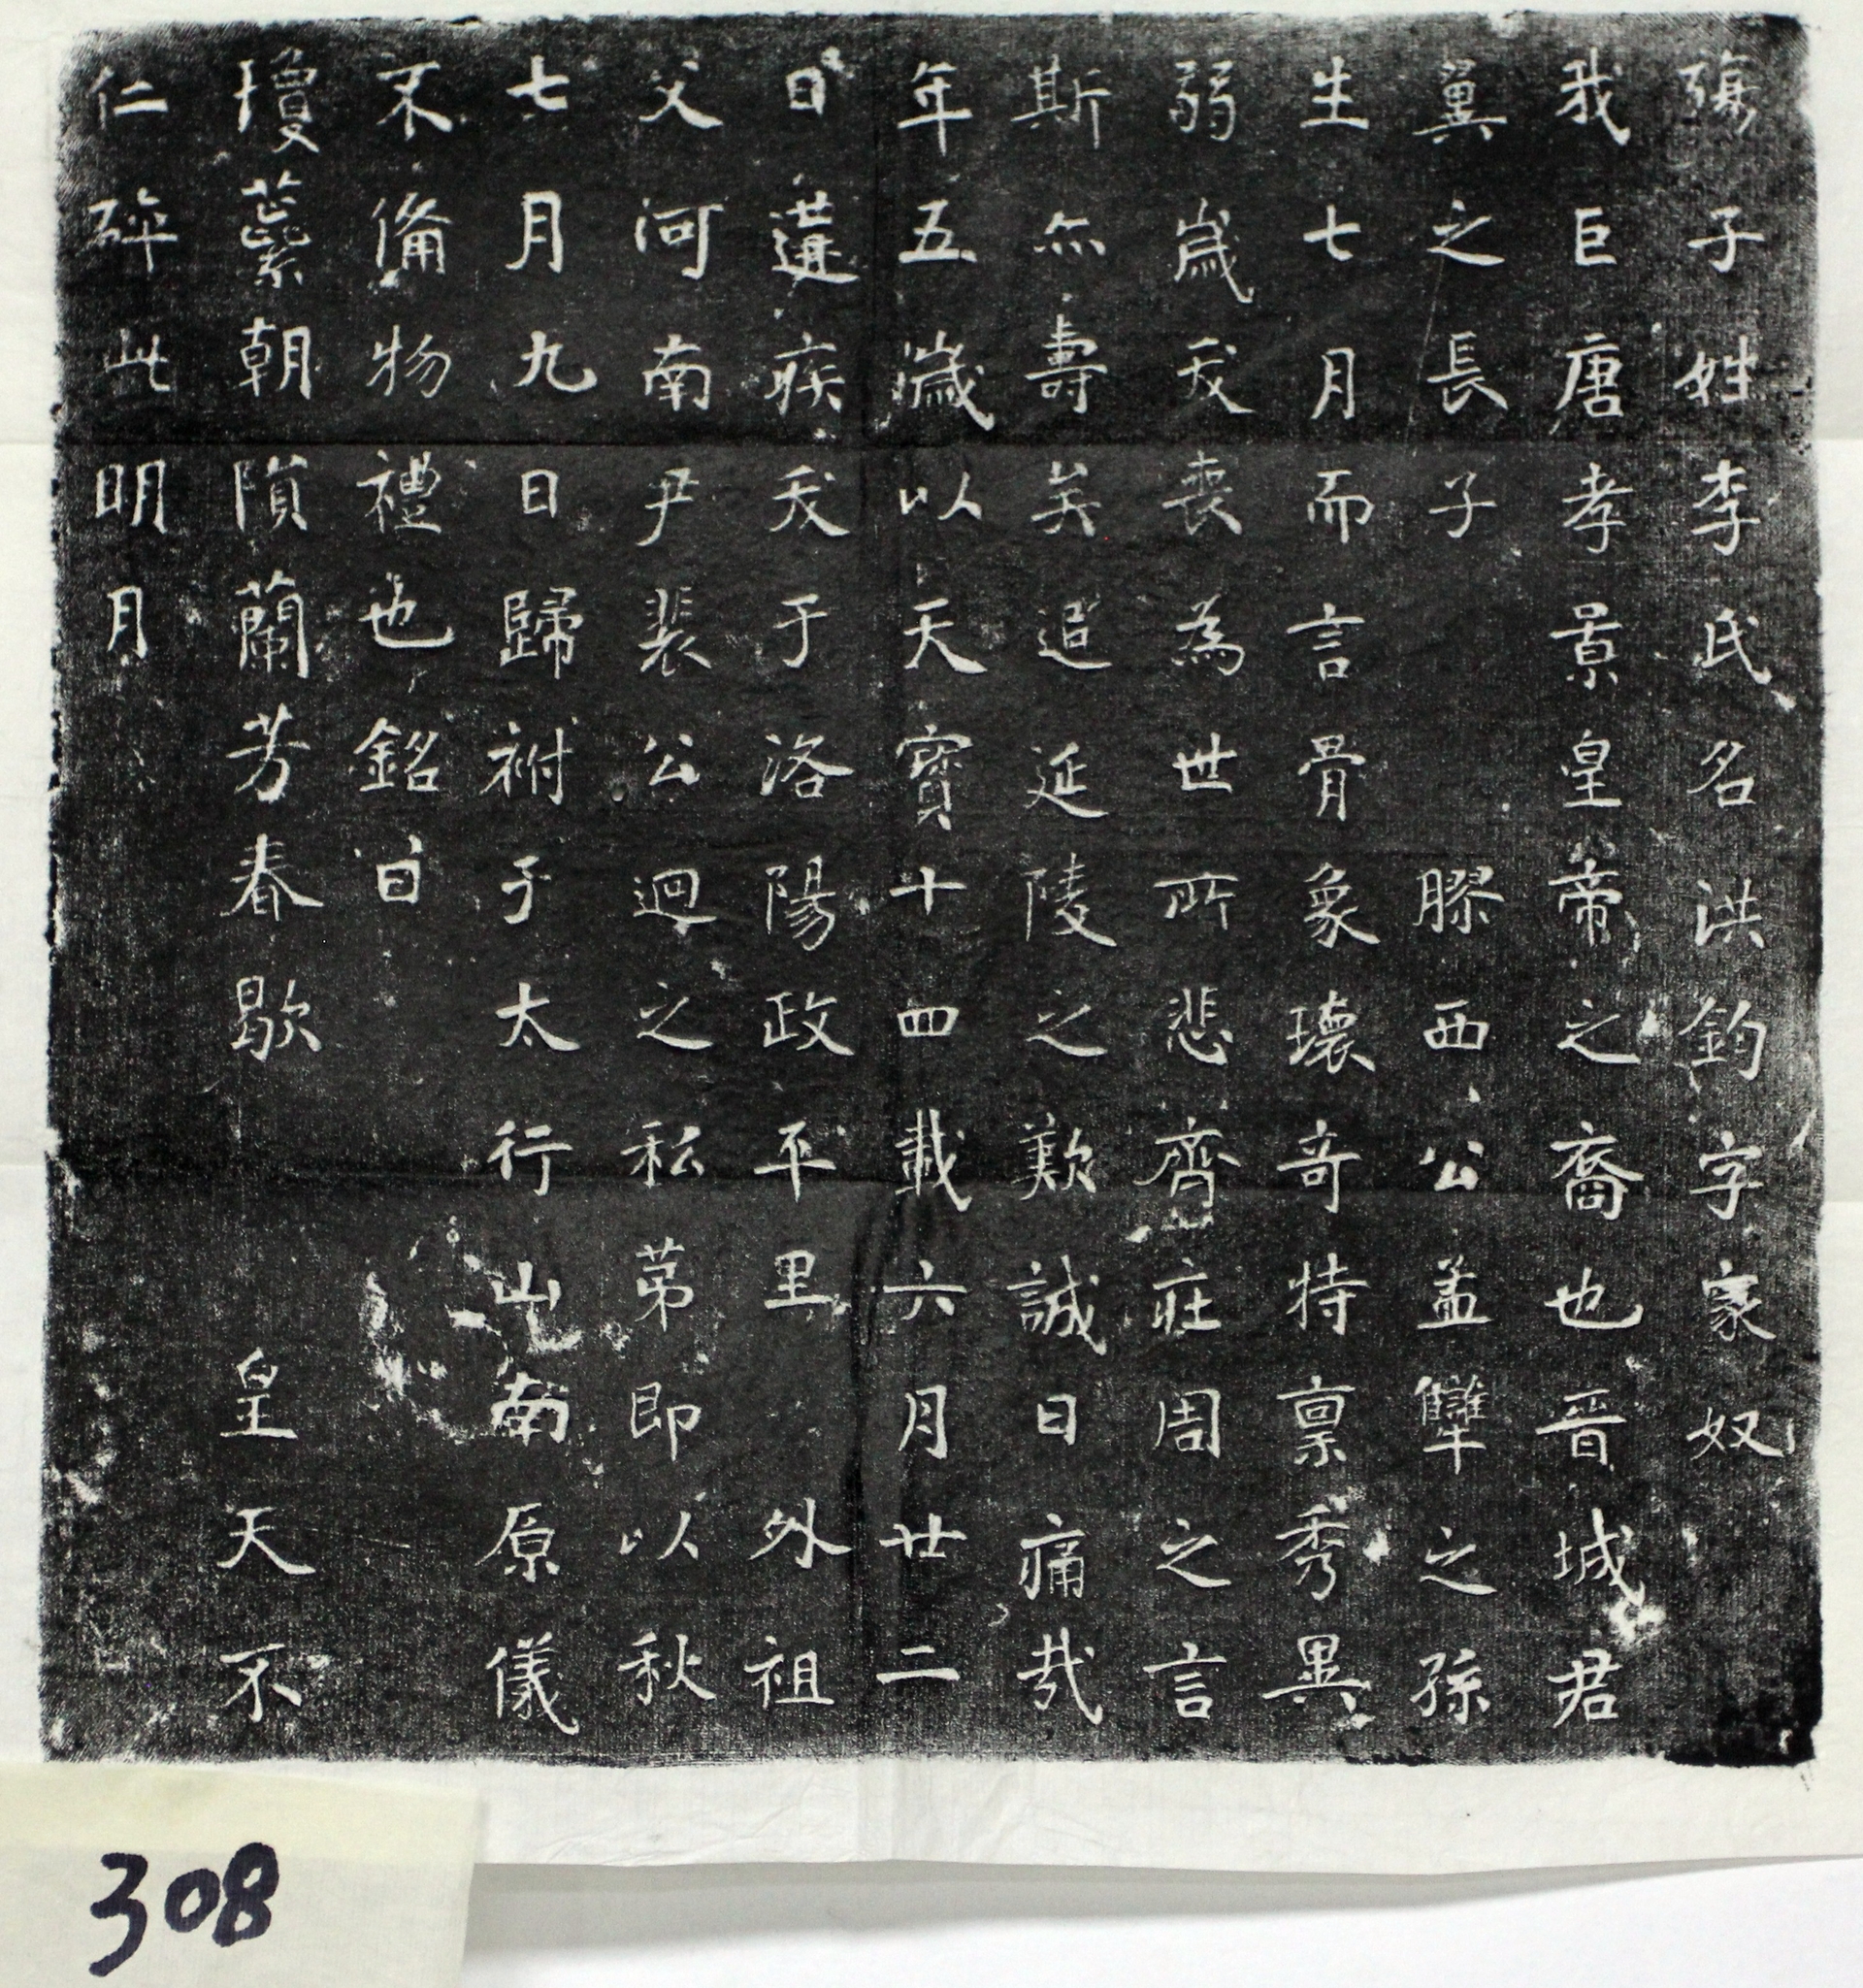 殤子姓李氏名洪鈞字家奴
我巨唐孝景皇帝之裔也晉城君
翼之長子膠西公孟犨之孫
生七月而言骨象瓌奇特稟秀異
弱歲夭喪為世所悲齊莊周之言
斯亦壽矣追延陵之歎誠曰痛哉
年五歲以天寶十四載六月廿二
日遘疾夭于洛陽政平里外祖
父河南尹裴公迥之私第即以秋
七月九日歸祔于太行山南原儀
不備物禮也銘曰
瓊蘂朝隕蘭芳春歇皇天不
仁碎此明月
308